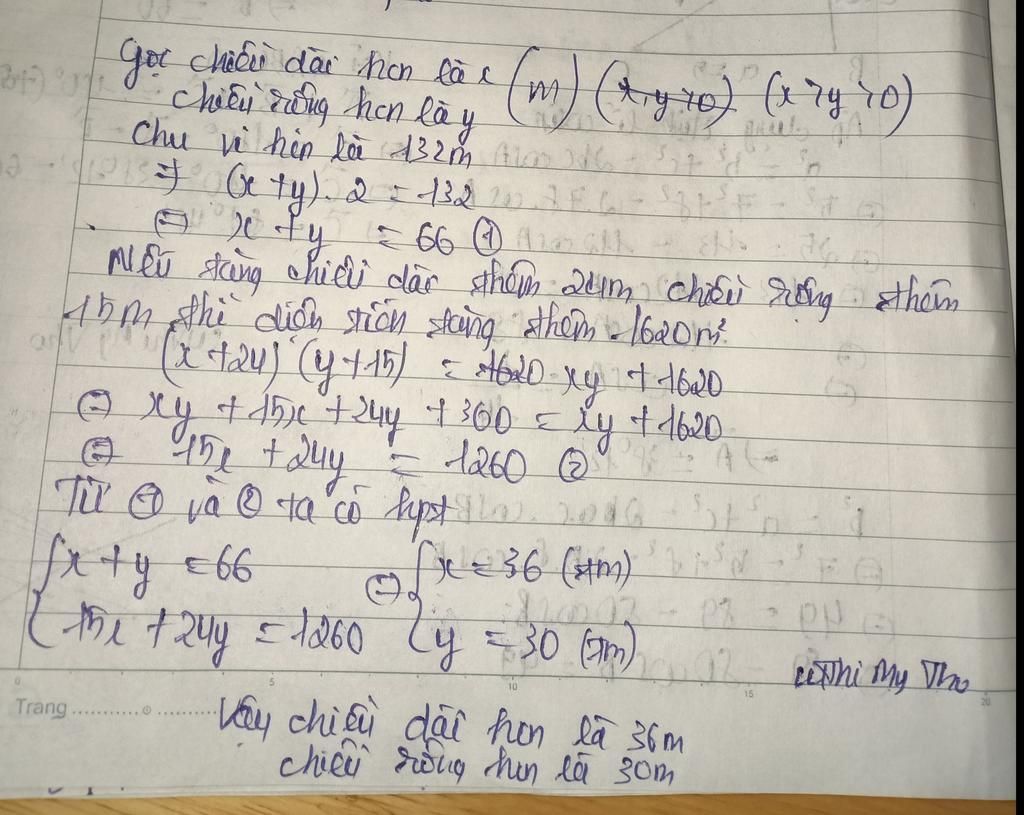 Gọi chiều dài hcn là x (m) (x, y > 0) (x > y > 0)
chiều rộng hcn là y
Chu vi hcn là 132m
=> (x + y) . 2 = 132
<=> x + y = 66 ①
Nếu tăng chiều dài thêm 24m chiều rộng thêm
15m thì diện tích tăng thêm 1620m²
(x + 24) (y + 15) = 1620 xy + 1620
<=> xy + 15x + 24y + 360 = xy + 1620
<=> 15x + 24y = 1260 ②
Từ ① và ② ta có hpt
{ x + y = 66 <=> { x = 36 (tm)
{ 15x + 24y = 1260 { y = 30 (tm)
Thi My Tho
0 5 10 15 20
Trang
Vậy chiều dài hcn là 36m
chiều rộng hcn là 30m